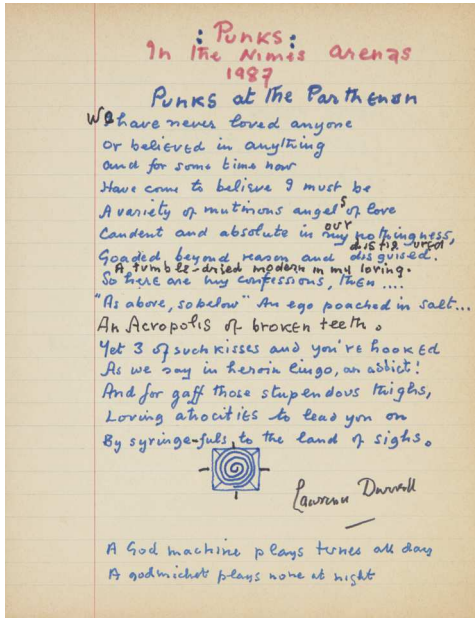 : Punks :
In the Nimes arenas
1987
Punks at the Parthenon
We have never loved anyone
or believed in anything
and for some time now
Have come to believe I must be
A variety of mutinous angels of love
Candent and absolute in my our nothingness,
Goaded, beyond reason and disguised.
A tumble-dried modern in my loving.
So here are my confessions, then ....
"As above, so below" An ego poached in salt...
An Acropolis of broken teeth.
Yet 3 of such kisses and you're hooked
As we say in heroin lingo, an addict!
And for gaff those stupendous thighs,
Loving atrocities to lead you on
By syringe-fuls to the land of sighs.
Lawrence Durrell
A God machine plays tunes all day
A godmichet plays none at night